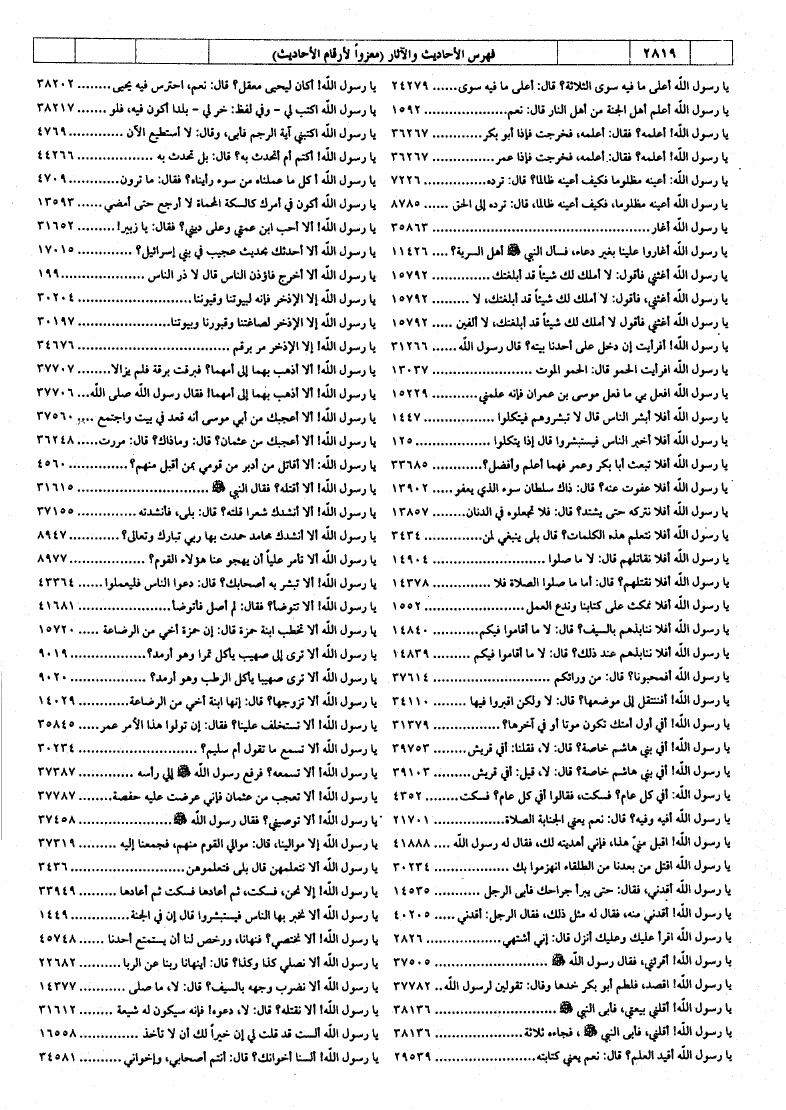 ٢٨١٩
فهرس الأحاديث والآثار (معزواً لأرقام الأحاديث)
يا رسول الله أعلى ما فيه سوى الثلاثة؟ قال: أعلى ما فيه سوى...... ٢٤٢٧٩
يا رسول الله أعلم أهل الجنة من أهل النار قال: نعم................ ١٥٩٢
يا رسول الله! أعلمه؟ فقال: أعلمه، فخرجت فإذا أبو بكر............ ٣٦٢٦٧
يا رسول الله! أعلمه؟ فقال: أعلمه، فخرجت فإذا عمر............... ٣٦٢٦٧
يا رسول الله: أعينه مظلوما فكيف أعينه ظالما؟ قال: ترده............ ٧٢٢٦
يا رسول الله: أعينه مظلوما، فكيف أعينه ظالما، قال: ترده إلى الحق... ٨٧٨٥
يا رسول الله أغار............................................. ٣٥٨٦٣
يا رسول الله! أغاروا علينا بغير دعاء، فسأل النبي ﷺ أهل السرية؟.... ١١٤٢٦
يا رسول الله أغثني فأقول: لا أملك لك شيئاً قد أبلغتك............. ١٥٧٩٢
يا رسول الله أغثني، فأقول: لا أملك لك شيئاً قد أبلغتك، لا ......... ١٥٧٩٢
يا رسول الله أغثني فأقول لا أملك لك شيئاً قد أبلغتك، لا ألفين ...... ١٥٧٩٢
يا رسول الله! أفرأيت إن دخل على أحدنا بيته؟ قال رسول الله....... ٣١٢٦٦
يا رسول الله افرأيت الحمو قال: الحمو الموت..................... ١٣٠٣٧
يا رسول الله افعل بي ما فعل موسى بن عمران فإنه علمني........... ١٥٢٢٩
يا رسول الله أفلا أبشر الناس قال لا تبشروهم فيتكلوا............... ١٤٤٧
يا رسول الله أفلا أخبر الناس فيستبشروا قال إذا يتكلوا ............... ١٢٥
يا رسول الله! أفلا تبعث أبا بكر وعمر فهما أعلم وأفضل؟.......... ٣٣٦٨٥
يا رسول الله أفلا عفوت عنه؟ قال: ذاك سلطان سوء الذي يعفو...... ١٣٩٠٢
يا رسول الله أفلا نتركه حتى يشتد؟ قال: فلا تجعلوه في الدنان........ ١٣٨٥٧
يا رسول الله أفلا نتعلم هذه الكلمات؟ قال بلى ينبغي لمن............. ٣٤٣٤
يا رسول الله أفلا نقاتلهم قال: لا ما صلوا ........................ ١٤٩٠٤
يا رسول الله أفلا نقتلهم؟ قال: أما ما صلوا الصلاة فلا ............. ١٤٣٧٨
يا رسول الله أفلا نمكث على كتابنا وندع العمل................... ١٥٥٢
يا رسول الله أفلا ننابذهم بالسيف؟ قال: لا ما أقاموا فيكم........... ١٤٨٤٠
يا رسول الله أفلا ننابذهم عند ذلك؟ قال: لا ما أقاموا فيكم ......... ١٤٨٣٩
يا رسول الله أفمحبونا؟ قال: من ورائكم......................... ٣٧٦١٤
يا رسول الله! أفننتقل إلى موضعها؟ قال: لا ولكن اقبروا فيها ........ ٣٤١١٠
يا رسول الله! أفي أول أمتك تكون موتا أو في آخرها؟.............. ٣١٣٧٩
يا رسول الله! أفي بني هاشم خاصة؟ قال: لا، فقلنا: أفي قريش........ ٣٩٧٥٣
يا رسول الله! أفي بني هاشم خاصة؟ قال: لا، قيل: أفي قريش......... ٣٩١٠٣
يا رسول الله: أفي كل عام؟ فسكت، فقالوا أفي كل عام؟ فسكت...... ٤٣٥٢
يا رسول الله! أفيه وفيه؟ قال: نعم يعني الجنابة الصلاة............... ٢١٧٠١
يا رسول الله! اقبل منيّ هذا، فإني أهديته لك، فقال له رسول الله .... ٤١٨٨٨
يا رسول الله اقتل من بعدنا من الطلقاء انهزموا بك ................. ٣٠٢٣٤
يا رسول الله! أقدني، فقال: حتى يبرأ جراحك فأبى الرجل ........... ١٤٥٣٥
يا رسول الله! أقدني منه، فقال له مثل ذلك، فقال الرجل: أقدني...... ٤٠٢٠٥
يا رسول الله اقرأ عليك وعليك أنزل قال: إني أشتهي................ ٢٨٢٦
يا رسول الله! أقرئني، فقال رسول الله ﷺ ....................... ٣٧٥٠٥
يا رسول الله! اقصد، فلطم أبو بكر خدها وقال: تقولين لرسول الله.. ٣٧٧٨٢
يا رسول الله! أقلني بيعتي، فأبى النبي ﷺ ....................... ٣٨١٣٦
يا رسول الله! أقلني، فأبى النبي ﷺ، فجاءه ثلاثة................... ٣٨١٣٦
يا رسول الله أقيد العلم؟ قال: نعم يعني كتابته..................... ٢٩٥٣٩
يا رسول الله! أكان ليحيى معقل؟ قال: نعم، احترس فيه يحيى........ ٣٨٢٠٢
يا رسول الله! اكتب لي - وفي لفظ: خر لي - بلدا أكون فيه، فلو ...... ٣٨٢١٧
يا رسول الله اكتبني آية الرجم فأبى، وقال: لا أستطيع الآن ............ ٤٧٦٩
يا رسول الله! أكتم أم أتحدث به؟ قال: بل تحدث به ................ ٤٤٢٦٦
يا رسول الله أ كل ما عملناه من سوء رأيناه؟ فقال: ما ترون.......... ٤٧٠٩
يا رسول الله أكون في أمرك كالسكة المحماة لا أرجع حتى أمضي...... ١٣٥٩٣
يا رسول الله! ألا أحب ابن عمتي وعلى ديني؟ فقال: يا زبير!......... ٣١٦٥٢
يا رسول الله ألا أحدثك بحديث عجيب في بني إسرائيل؟ ........... ١٧٠١٥
يا رسول الله ألا أخرج فأؤذن الناس قال لا ذر الناس................. ١٩٩
يا رسول الله إلا الإذخر فإنه لبيوتنا وقيوتنا......................... ٣٠٢٠٤
يا رسول الله إلا الإذخر لصاغتنا وقبورنا وبيوتنا..................... ٣٠١٩٧
يا رسول الله! إلا الإذخر مر برقم............................... ٣٤٦٧٦
يا رسول الله! ألا أذهب بهما إلى أمهما؟ فبرقت برقة فلم يزالا......... ٣٧٧٠٧
يا رسول الله! ألا أذهب بهما إلى أمهما! فقال رسول الله صلى الله... ٣٧٧٠٦
يا رسول الله! ألا أعجبك من أبي موسى أنه قعد في بيت واجتمع ..... ٣٧٥٦٠
يا رسول الله! ألا أعجبك من عثمان؟ قال: وماذاك؟ قال: مررت..... ٣٦٢٤٨
يا رسول الله: ألا أقاتل من أدبر من قومي بمن أقبل منهم؟............. ٤٥٦٠
يا رسول الله! ألا أقتله؟ فقال النبي ﷺ ......................... ٣١٦١٥
يا رسول الله! ألا أنشدك شعرا قلته؟ قال: بلى، فأنشدته ............ ٣٧١٥٥
يا رسول الله ألا أنشدك محامد حمدت بها ربي تبارك وتعالى؟........... ٨٩٤٧
يا رسول الله ألا تأمر علياً أن يهجو عنا هؤلاء القوم؟ ............... ٨٩٧٧
يا رسول الله! ألا تبشر به أصحابك؟ قال: دعوا الناس فليعملوا...... ٤٣٣٦٤
يا رسول الله! ألا تتوضأ؟ فقال: لم أصل فأتوضأ................... ٤١٦٨١
يا رسول الله ألا تخطب ابنة حمزة قال: إن حمزة أخي من الرضاعة ..... ١٥٧٢٠
يا رسول الله ألا ترى إلى صهيب يأكل تمرا وهو أرمد؟.............. ٩٠١٩
يا رسول الله ألا ترى صهيبا يأكل الرطب وهو أرمد؟............... ٩٠٢٠
يا رسول الله ألا تزوجها؟ قال: إنها ابنة أخي من الرضاعة.......... ١٤٠٢٩
يا رسول الله! ألا تستخلف علينا؟ فقال: إن تولوا هذا الأمر عمر..... ٣٥٨٤٥
يا رسول الله ألا تسمع ما تقول أم سليم؟ ........................ ٣٠٢٣٤
يا رسول الله! ألا تسمعه؟ فرفع رسول الله ﷺ إلى رأسه ........... ٣٧٣٨٧
يا رسول الله! ألا تعجب من عثمان فإني عرضت عليه حفصة......... ٣٧٧٨٧
يا رسول الله! ألا توصيني؟ فقال رسول الله ﷺ................... ٣٧٤٥٨
يا رسول الله! إلا موالينا، قال: موالي القوم منهم، فجمعنا إليه ....... ٣٧٣١٩
يا رسول الله ألا نتعلمهن قال بلى فتعلموهن....................... ٣٤٣٦
يا رسول الله! إلا نحن، فسكت، ثم أعادها فسكت ثم أعادها......... ٣٣٩٤٩
يا رسول الله ألا نخبر بها الناس فيستبشروا قال إن في الجنة............ ١٤٤٩
يا رسول الله! ألا نختصي؟ فنهانا، ورخص لنا أن يستمتع أحدنا ...... ٤٥٧٤٨
يا رسول الله ألا نصلي كذا وكذا؟ قال: أينهانا ربنا عن الربا........ ٢٢٦٨٢
يا رسول الله ألا نضرب وجهه بالسيف؟ قال: لا، ما صلى........... ١٤٣٧٧
يا رسول الله! ألا نقتله؟ قال: لا، دعوه! فإنه سيكون له شيعة ....... ٣١٦١٢
يا رسول الله ألست قد قلت لي إن خيراً لك أن لا تأخذ............ ١٦٥٥٨
يا رسول الله! ألسنا أخوانك؟ قال: أنتم أصحابي، وإخواني.......... ٣٤٥٨١